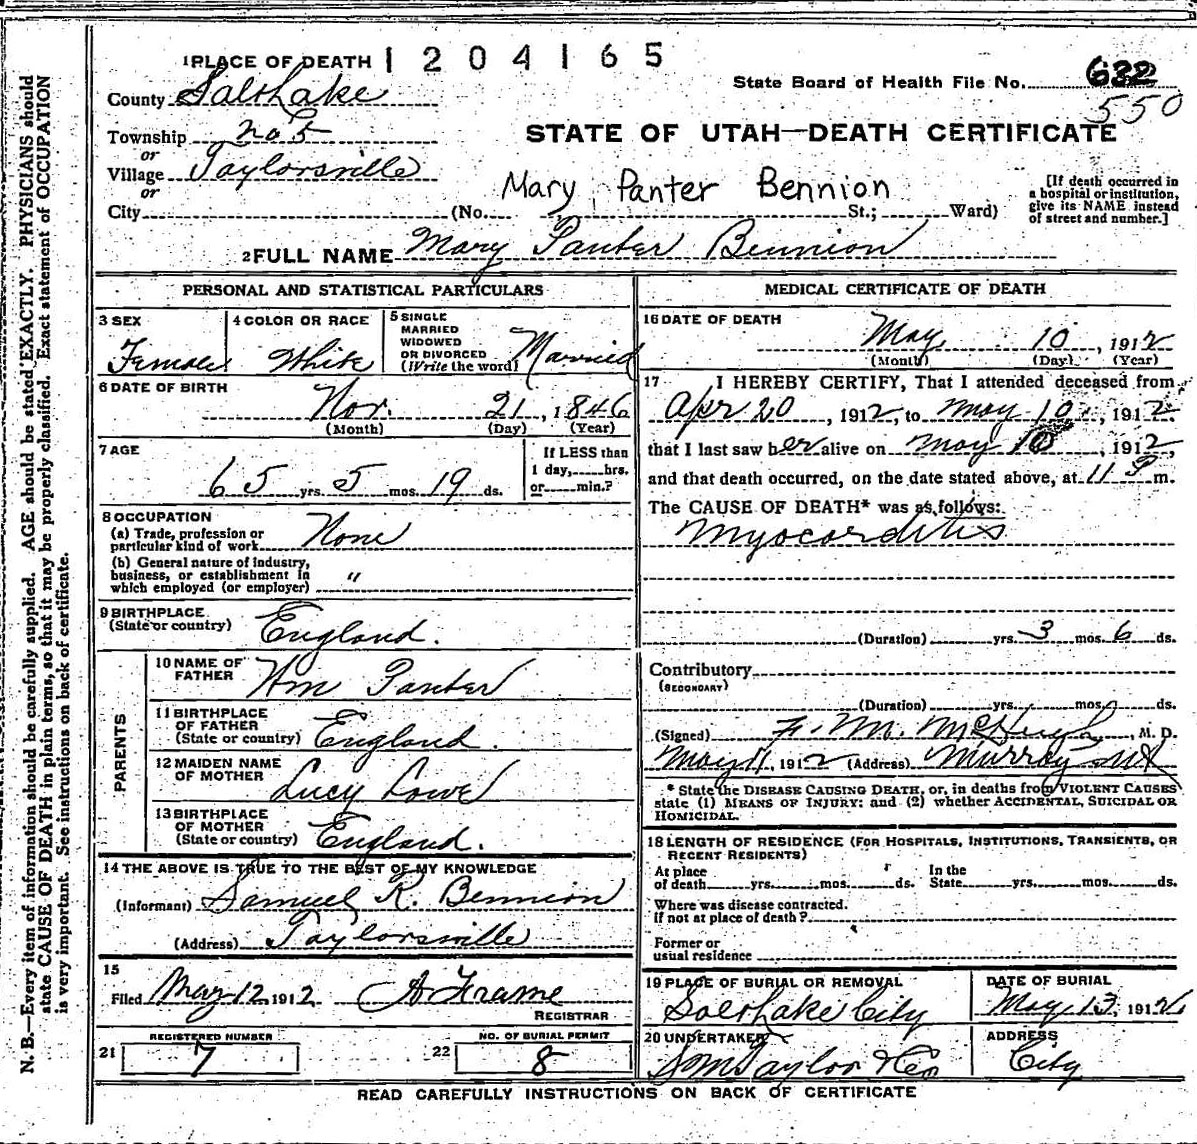 1 PLACE OF DEATH 1204165
State Board of Health File No. 632
550
County Salt Lake
Township no 5
or
Village Taylorsville
or
City (No. St.; Ward)
STATE OF UTAH—DEATH CERTIFICATE
Mary Panter Bennion
[If death occurred in
a hospital or institution,
give its NAME instead
of street and number.]
2 FULL NAME Mary Panter Bennion
PERSONAL AND STATISTICAL PARTICULARS
3 SEX
Female
4 COLOR OR RACE
White
5 SINGLE
MARRIED
WIDOWED
OR DIVORCED
(Write the word) Married
6 DATE OF BIRTH
Nov. 21, 1846
(Month) (Day) (Year)
7 AGE
65 yrs. 5 mos. 19 ds.
If LESS than
1 day, hrs.
or min.?
8 OCCUPATION
(a) Trade, profession or
particular kind of work None
(b) General nature of industry,
business, or establishment in
which employed (or employer) "
9 BIRTHPLACE
(State or country) England.
PARENTS
10 NAME OF
FATHER Wm Panter
11 BIRTHPLACE
OF FATHER
(State or country) England.
12 MAIDEN NAME
OF MOTHER Lucy Lowe
13 BIRTHPLACE
OF MOTHER
(State or country) England.
14 THE ABOVE IS TRUE TO THE BEST OF MY KNOWLEDGE
(Informant) Samuel R. Bennion
(Address) Taylorsville
15
Filed May 12 1912 A Frame
REGISTRAR
REGISTERED NUMBER
21 7
NO. OF BURIAL PERMIT
22 8
MEDICAL CERTIFICATE OF DEATH
16 DATE OF DEATH
May 10, 1912
(Month) (Day) (Year)
17 I HEREBY CERTIFY, That I attended deceased from
Apr 20, 1912, to May 10, 1912
that I last saw her alive on May 10, 1912,
and that death occurred, on the date stated above, at 11 P m.
The CAUSE OF DEATH* was as follows:
Myocarditis
(Duration) yrs. 3 mos. 6 ds.
Contributory
(SECONDARY)
(Duration) yrs. mos. ds.
(Signed) F. M. McHugh, M. D.
May 11, 1912 (Address) Murray Ut
* State the DISEASE CAUSING DEATH, or, in deaths from VIOLENT CAUSES
state (1) MEANS OF INJURY: and (2) whether ACCIDENTAL, SUICIDAL OR
HOMICIDAL.
18 LENGTH OF RESIDENCE (FOR HOSPITALS, INSTITUTIONS, TRANSIENTS, OR
RECENT RESIDENTS)
At place
of death yrs. mos. ds.
In the
State yrs. mos. ds.
Where was disease contracted.
If not at place of death?
Former or
usual residence
19 PLACE OF BURIAL OR REMOVAL
Salt Lake City
DATE OF BURIAL
May 13, 1912
20 UNDERTAKER
S M Taylor & Co
ADDRESS
City
READ CAREFULLY INSTRUCTIONS ON BACK OF CERTIFICATE
N. B.—Every item of information should be carefully supplied. AGE should be stated EXACTLY. PHYSICIANS should
state CAUSE OF DEATH in plain terms, so that it may be properly classified. Exact statement of OCCUPATION
is very important. See instructions on back of certificate.